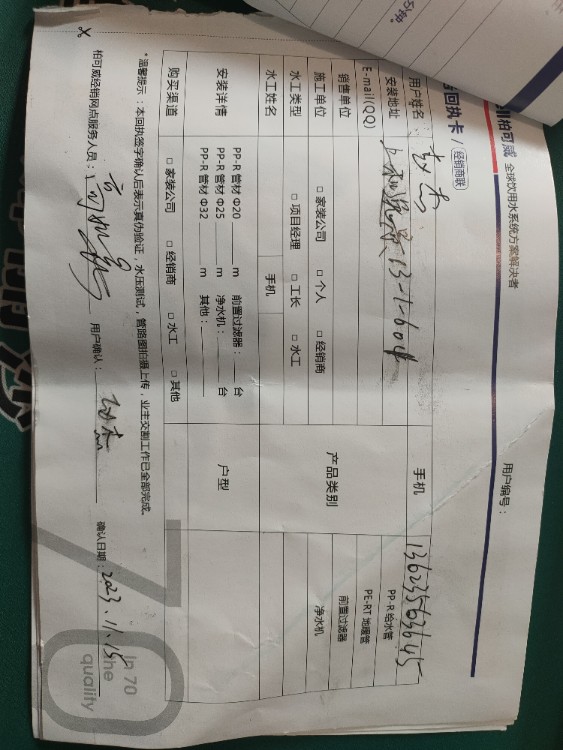 柏可威 全球饮用水系统方案解决者
用户编号：
回执卡 / 经销商联
用户姓名： 赵杰 手机 13623563645
安装地址 13-1-604
E-mail(QQ)
销售单位 产品类别 PP-R 给水管
PE-RT 地暖管
前置过滤器
净水机
施工单位 □ 家装公司 □ 个人 □ 经销商
水工类型 □ 项目经理 □ 工长 □ 水工
水工姓名 手机
安装详情 PP-R 管材 Φ20 ____ m 前置过滤器：____ 台
PP-R 管材 Φ25 ____ m 净水机：____ 台
PP-R 管材 Φ32 ____ m 其他：____
户型
购买渠道 □ 家装公司 □ 经销商 □ 水工 □ 其他
* 温馨提示：本回执签字确认后表示真伪验证，水压测试，管路图拍摄上传，业主交割工作已全部完成。
柏可威经销网点服务人员： 用户确认： 赵杰 确认日期： 2023.11.15
70
In 70
the
quality